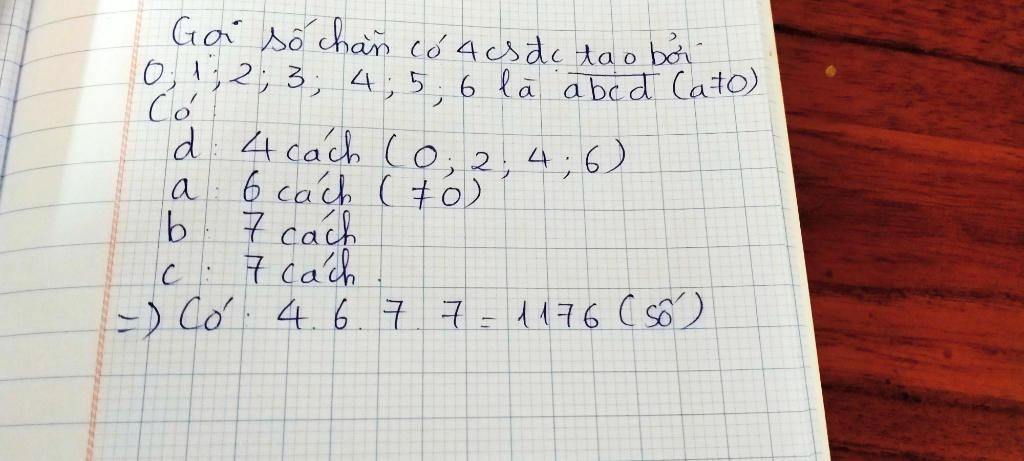 Gọi số chẵn có 4 csđc tạo bởi
0; 1; 2; 3; 4; 5; 6 là abcd (a≠0)
Có
d: 4 cách (0; 2; 4; 6)
a: 6 cách (≠0)
b: 7 cách
c: 7 cách.
=) Có: 4. 6. 7. 7 = 1176 (số)